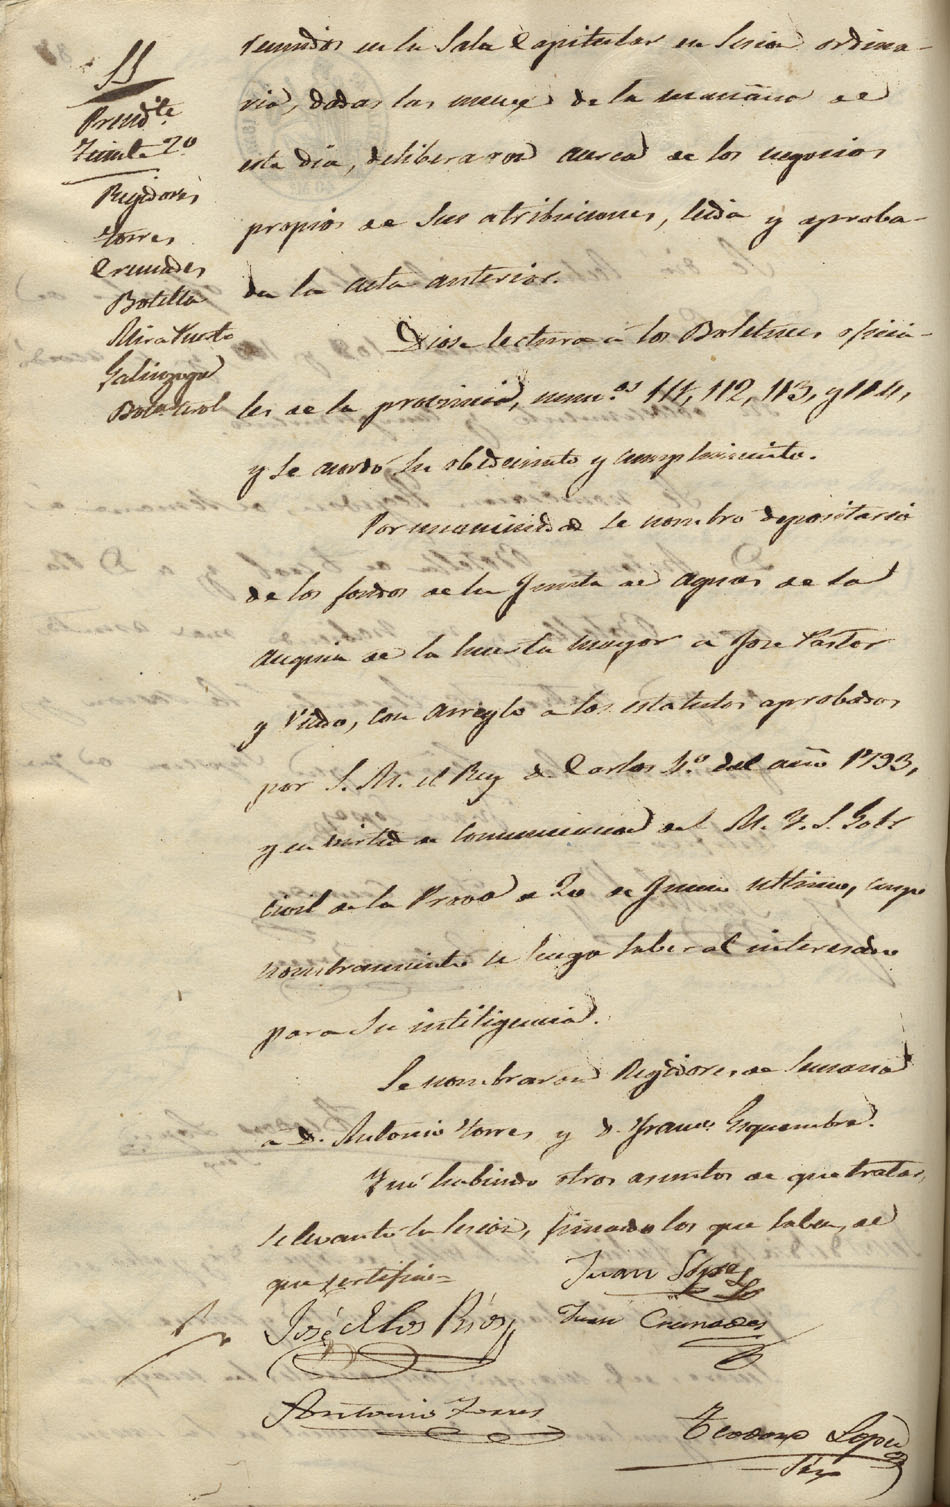 SS
Presid.te
Teniente 2º
Regidores
Torres
Cremades
Botella
Mira Puerto
Galinzoga
Botella Sol
reunidos en la Sala Capitular en sesion ordina-
ria, dadas las nueve de la mañana de
este dia, deliberaron acerca de los negocios
propios de sus atribuciones, leida y aproba-
da la acta anterior.
Diose lectura a los Boletines oficia-
les de la provincia, num.os 111, 112, 113, y 114,
y se acordó su obedecimiento y cumplimiento.
Por unanimidad se nombró depositario
de los fondos de la Junta de aguas de la
acequia de la huerta mayor a Jose Pastor
y Vido, con arreglo a los estatutos aprobados
por S. M. el Rey D. Carlos 4.º del año 1793,
y en virtud de comunicacion del M. Y. S. Gobr
civil de la Prova de 20 de Junio ultimo, cuyo
nombramiento se haga saber al interesado
para su inteligencia.
Se nombraron Regidores de semana
a D. Antonio Torres y D. Franco Esquembre.
Y no habiendo otros asuntos de que tratar,
se levantó la sesion, firmando los que saben, de
que certifico=
Juan Lopez
José de los Rios
Juan Cremades
Antonio Torres
Teodoro Lopez
Srio